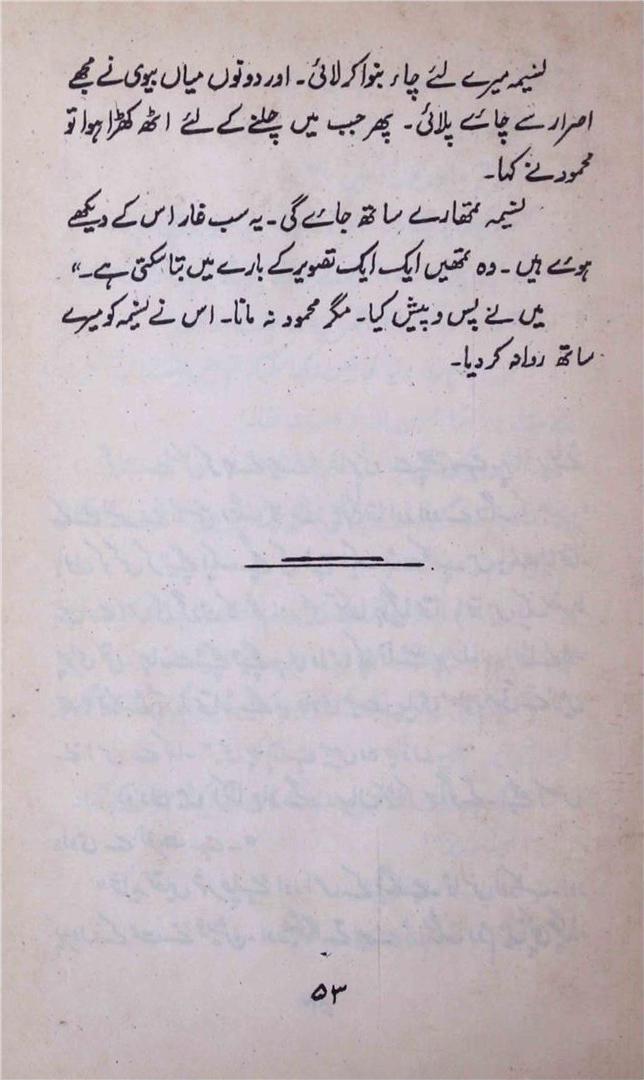 نسیمہ میرے لئے چاء بنوا کر لائی۔ اور دونوں میاں بیوی نے مجھے
اصرار سے چائے پلائی۔ پھر جب میں چلنے کے لئے اٹھ کھڑا ہوا تو
محمود نے کہا۔
نسیمہ تمھارے ساتھ جائے گی۔ یہ سب غار اس کے دیکھے
ہوئے ہیں۔ وہ تمھیں ایک ایک تصویر کے بارے میں بتا سکتی ہے۔"
میں نے پس و پیش کیا۔ مگر محمود نہ مانا۔ اس نے نسیمہ کو میرے
ساتھ روانہ کر دیا۔
۵۳